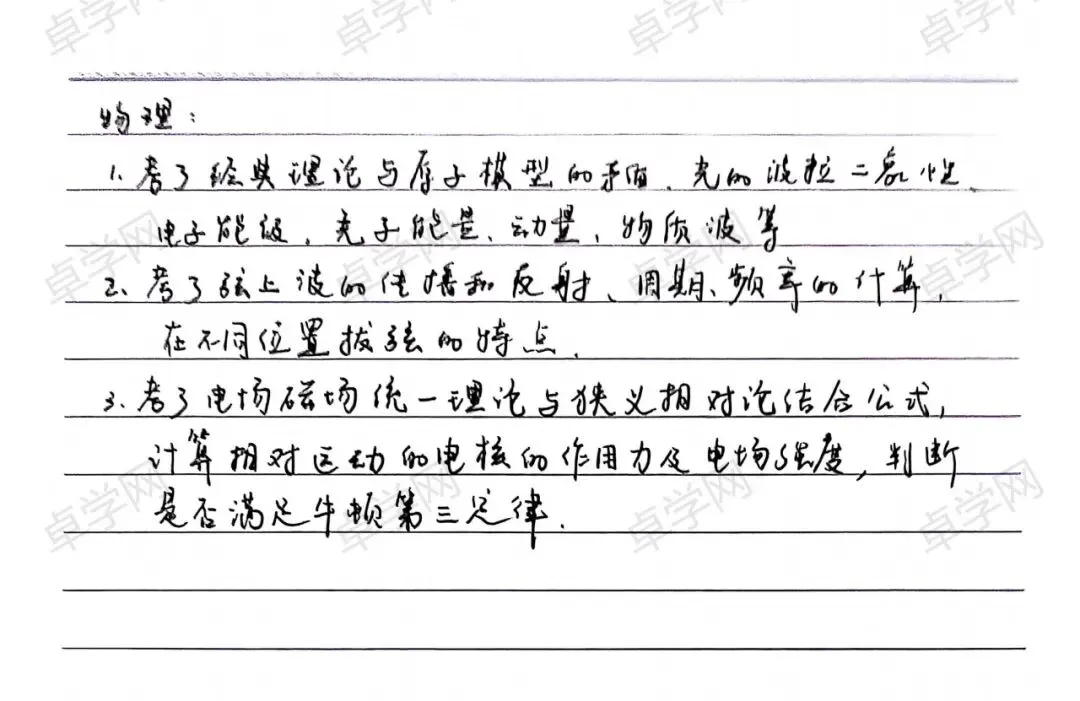 卓学网 卓学网 卓学网 卓学网
物理:
1. 考了经典理论与原子模型的矛盾、光的波粒二象性、
电子能级、光子能量、动量、物质波等
卓学网 卓学网 卓学网 卓学网
2、考了弦上波的传播和反射、周期、频率的计算,
在不同位置拔弦的特点、
3、考了电场磁场统一理论与狭义相对论结合公式,
计算相对运动的电核的作用力及电场强度,判断
是否满足牛顿第三定律.
卓学网 卓学网 卓学网 卓学网